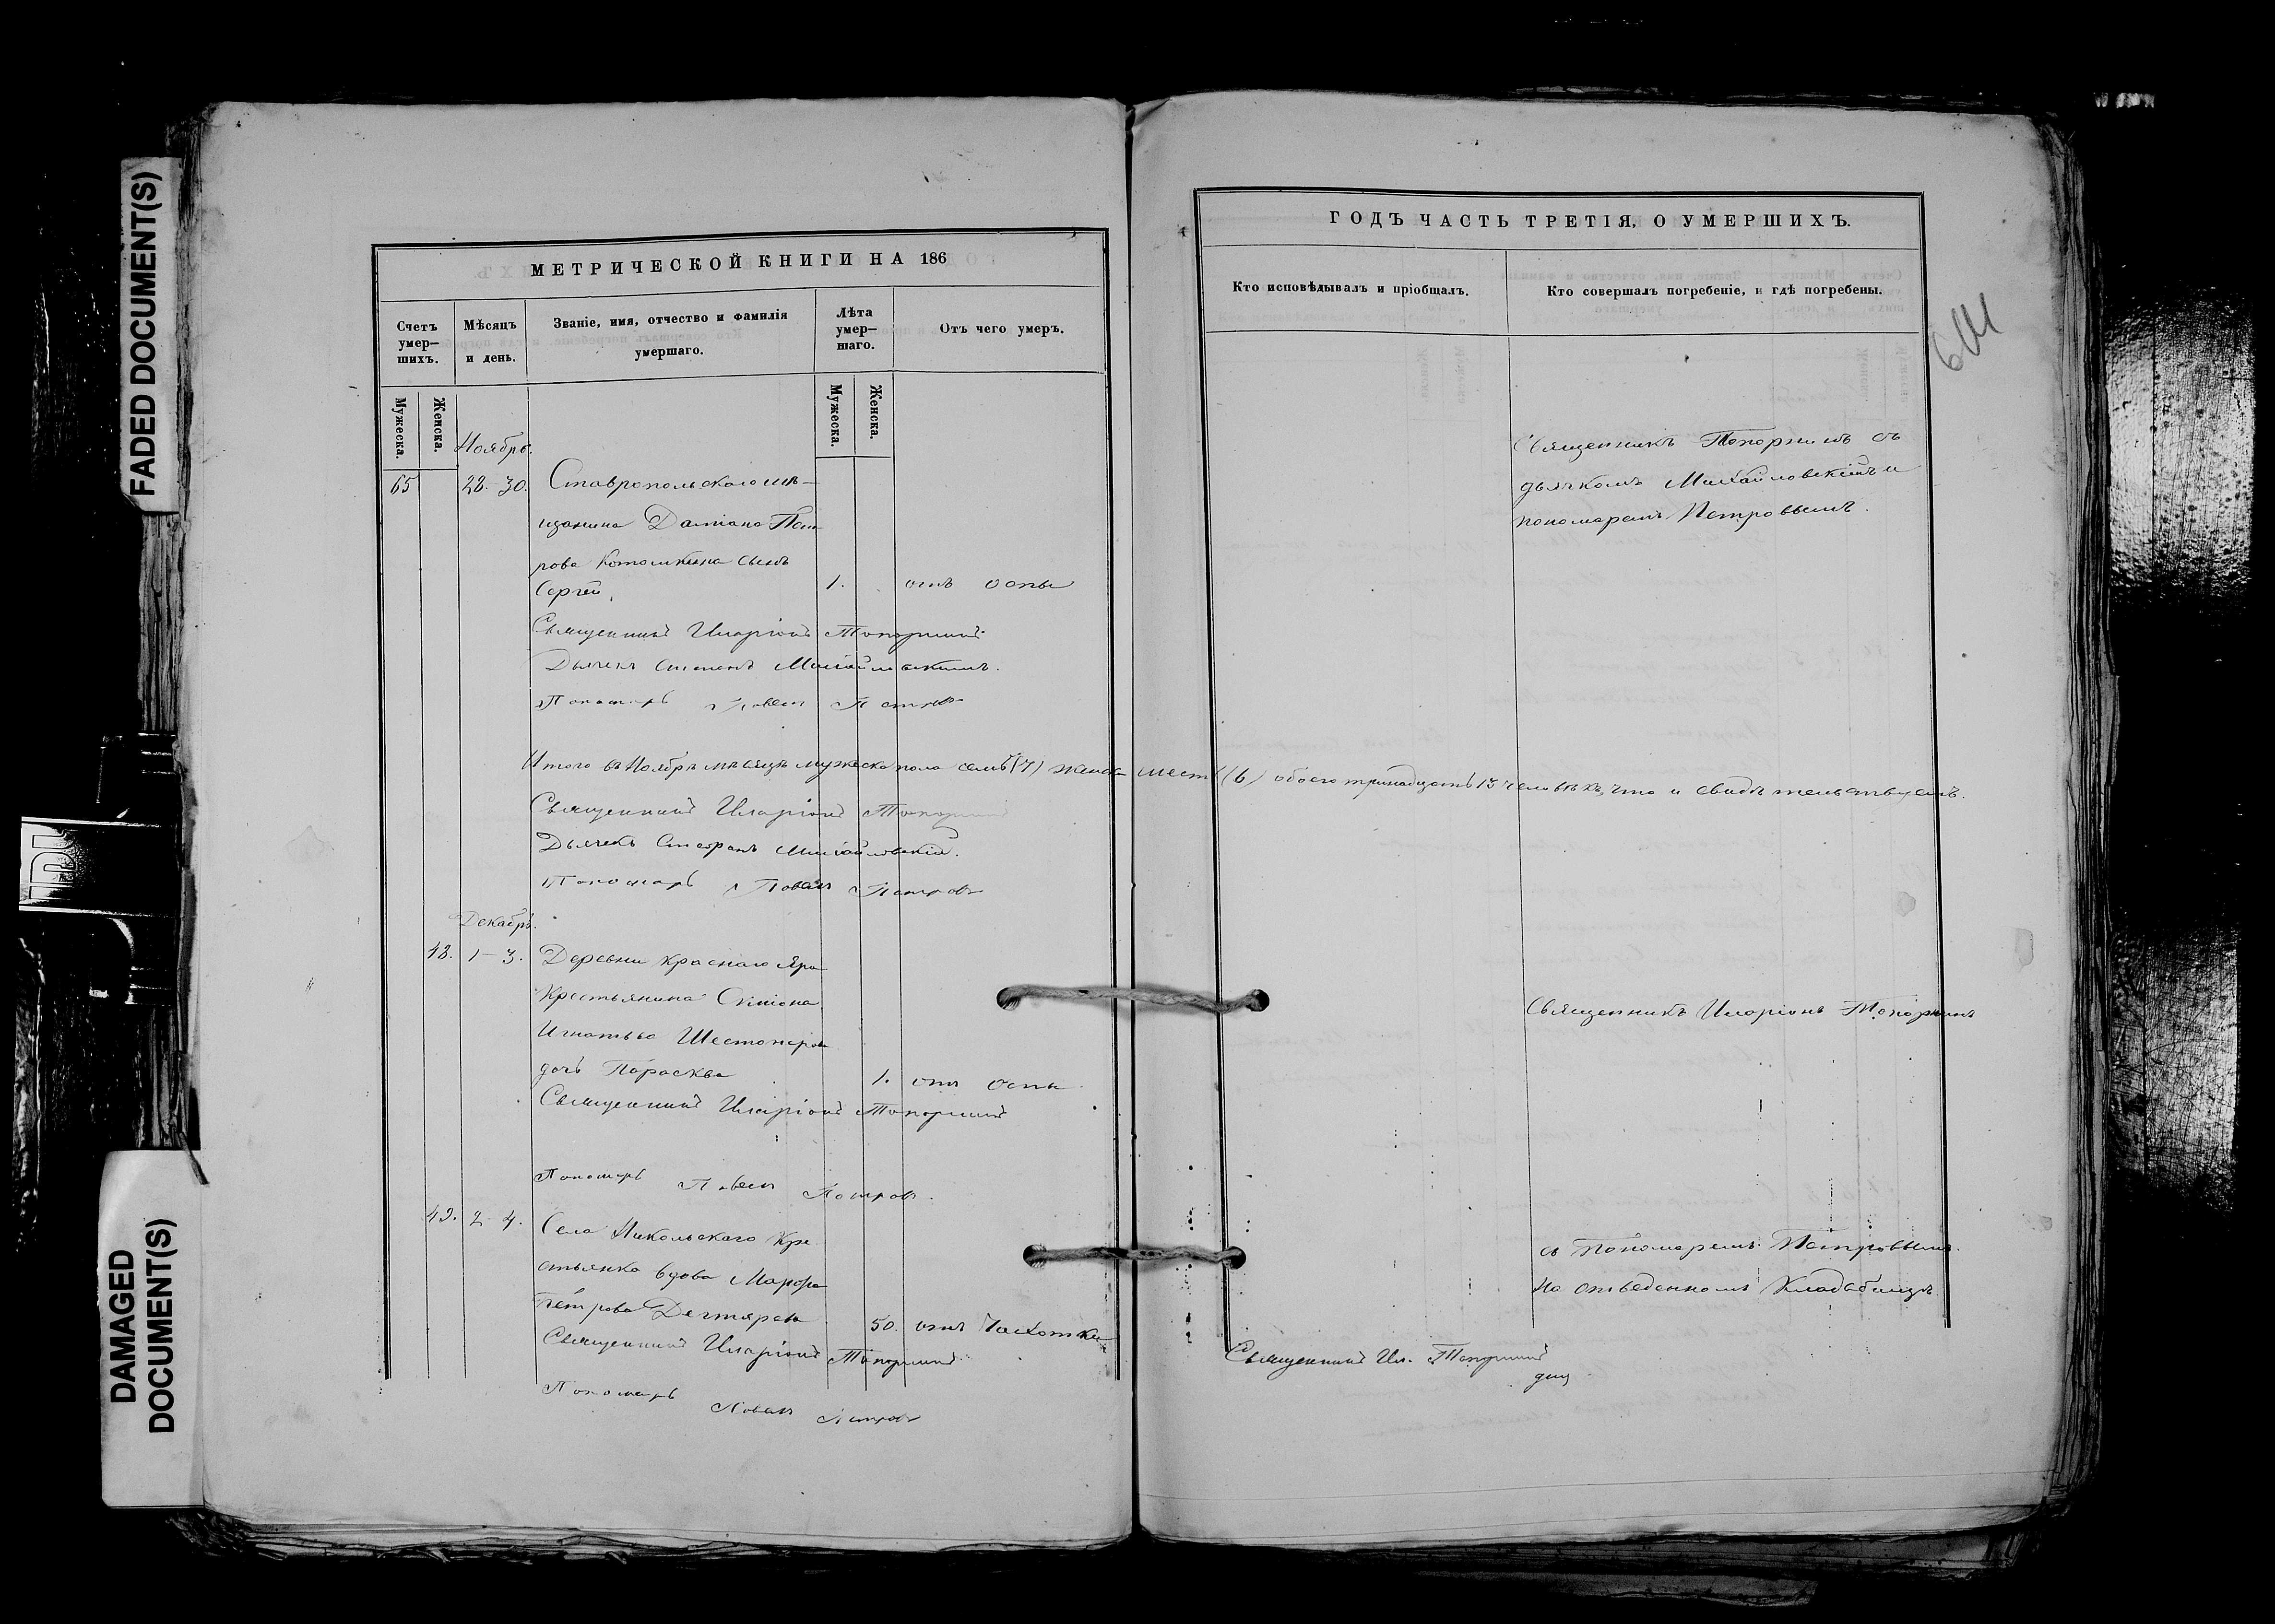 FADED DOCUMENT(S)
DAMAGED
DOCUMENT(S)
МЕТРИЧЕСКОЙ КНИГИ НА 186
Счетъ
умер-
шихъ.
Мѣсяцъ
и день.
Званіе, имя, отчество и фамилія
умершаго.
Лѣта
умер-
шаго.
Отъ чего умеръ.
Мужеска.
Женска.
Мужеска.
Женска.
Ноябрь.
65 28. 30. Ставропольскаго мѣ-
щанина Даміана Пет
рова Котошкина сынъ
Сергей. 1. отъ оспы
Священникъ Иларіонъ Топорнинъ
Дьячекъ Стефанъ Михайловскій.
Пономарь Павелъ Петровъ
Итого въ Ноябрѣ мѣсяцѣ мужеска пола семь (7) женска шесть (6) обоего тринадцать 13 человѣкъ, что и свидѣтельствуемъ.
Священникъ Иларіонъ Топорнинъ
Дьячекъ Стефанъ Михайловскій.
Пономарь Павелъ Петровъ
Декабрь.
48. 1-3. Деревни Краснаго Яра
Крестьянина Симіона
Игнатьева Шестоперова
дочь Параскева 1. отъ оспы
Священникъ Иларіонъ Топорнинъ
Пономарь Павелъ Петровъ.
49. 2-4. Села Никольскаго Кре
стьянка вдова Марфа
Петрова Дегтярева 50. отъ Чахотки
Священникъ Иларіонъ Топорнинъ
Пономарь Павелъ Петровъ
ГОДЪ ЧАСТЬ ТРЕТІЯ, О УМЕРШИХЪ.
Кто исповѣдывалъ и пріобщалъ.
Кто совершалъ погребеніе, и гдѣ погребены.
Священникъ Топорнинъ съ
дьячкомъ Михайловскимъ и
пономаремъ Петровымъ.
Священникъ Иларіонъ Топорнинъ
съ Пономаремъ Петровымъ.
на отведенномъ Кладбищѣ
Священникъ Ил. Топорнинъ